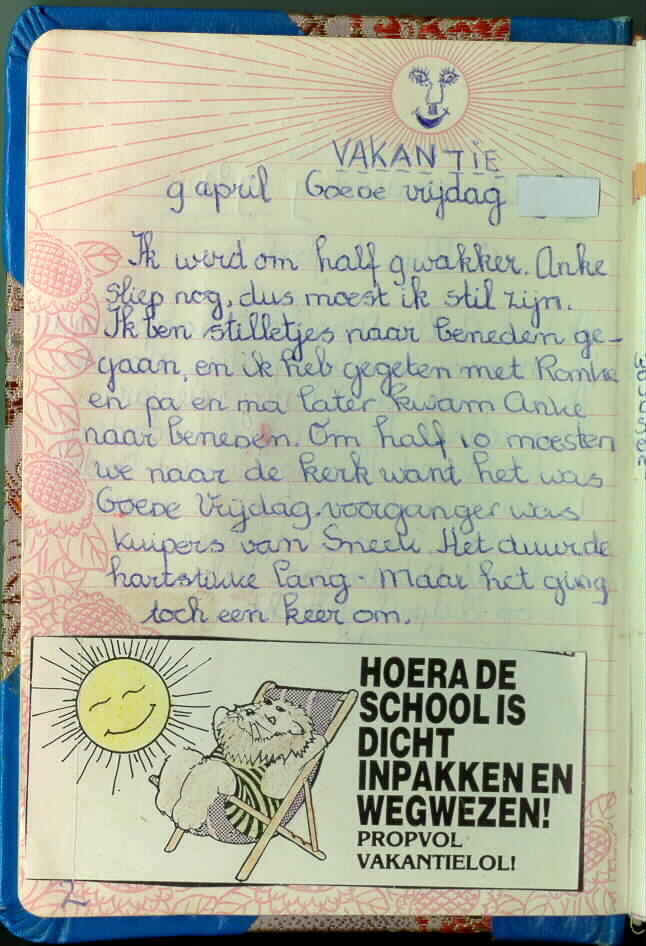 VAKANTIE
9 april Goede vrijdag
Ik werd om half 9 wakker. Anke
sliep nog, dus moest ik stil zijn.
Ik ben stilletjes naar beneden ge-
gaan, en ik heb gegeten met Romke
en pa en ma later kwam Anke
naar beneden. Om half 10 moesten
we naar de kerk want het was
Goede Vrijdag. voorganger was
Kuipers van Sneek. Het duurde
hartstikke lang. Maar het ging
toch een keer om.
HOERA DE
SCHOOL IS
DICHT
INPAKKEN EN
WEGWEZEN!
PROPVOL
VAKANTIELOL!
2